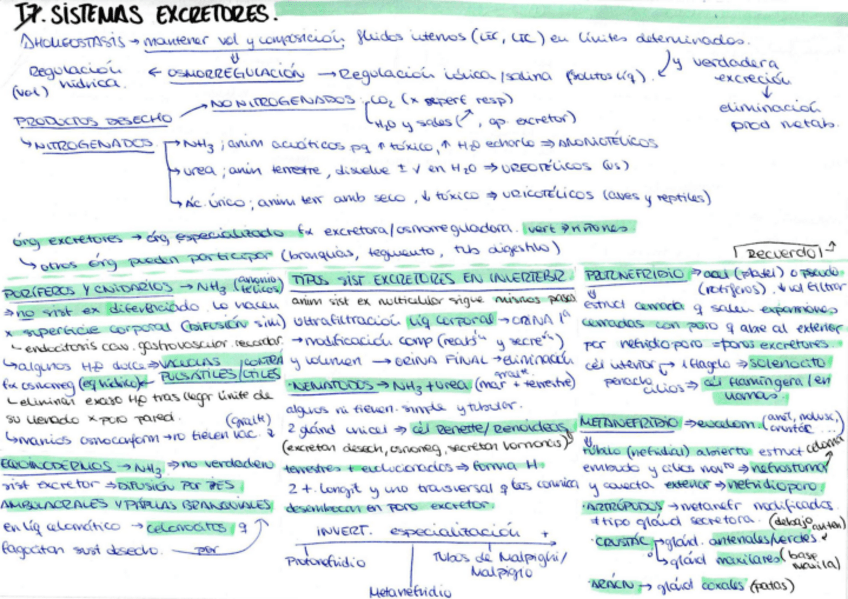 17. SISTEMAS EXCRETORES.
HOMEOSTASIS → mantener vol y composición fluidos internos (LEC, LIC) en límites determinados.
Regulación (vol) hídrica. ← OSMORREGULACIÓN → Regulación iónica/salina (solutos líq)
y verdadera excreción
↓
eliminación prod metab.
PRODUCTOS DESECHO
→ NO NITROGENADOS CO₂ (x superf resp)
H₂O y sales ( , ap. excretor)
↳ NITROGENADOS → NH₃; anim acuáticos pq ↑ tóxico, ↑ H₂O echarlo ⇒ AMONIOTÉLICOS
→ urea; anim terrestre, disuelve ± v en H₂O ⇒ UREOTÉLICOS (us)
→ Ác. Úrico; anim terr amb seco, ↓ tóxico ⇒ URICOTÉLICOS (aves y reptiles)
órg excretores → órg especializado fx excretora/osmorreguladora. vert ⇒ riñones
↳ otros órg pueden participar (branquias, tegumento, tub digestivo)
Recuerdo!
PORÍFEROS Y CNIDARIOS → NH₃ (amoniotélicos)
⇒ no sist ex diferenciado. Lo hacen
x superficie corporal (difusión sim)
- endocitosis cav. gastrovascular
↳ algunos H₂O dulce → VACUOLAS CONTRÁCTILES/PULSÁTILES
fx osmoreg (eq hídrico) ←
↳ eliminan exceso H₂O tras llegar límite de
su llenado x poro pared.
↳ marinos osmoconform → no tienen vac. (gralte)
EQUINODERMOS → NH₃ ⇒ no verdadero
sist excretor → DIFUSIÓN POR PIES
AMBULACRALES Y PÁPULAS BRANQUIALES
en líq celomático → celomocitos q
fagocitan sust desecho. por
TIPOS SIST EXCRETORES EN INVERTEBR
anim sist ex multicelular sigue mismos pasos
ultrafiltración líq corporal → ORINA 1ª
→ modificación comp (reabsⁿ y secreⁿ)
y volumen → ORINA FINAL → eliminación
• NEMATODOS → NH₃ + urea (mar + terrestre)
algunos ni tienen. simple y tubular.
2 glánd unicel → cél Renette/Renoideas
(excretan desech, osmoreg, secretan hormonas)
terrestres + evolucionados → forma H.
2 t. longit y uno transversal q las comunica
desembocan en poro excretor.
INVERT. especialización +
Protonefridio
Metanefridio
Tubos de Malpighi/Malpigio
PROTONEFRIDIO → acel (platel) o pseudo (rotíferos). ↓ vol filtrar
estruct cerrada q salen expansiones
cerradas con poro q abre al exterior
por nefridioporo = poros excretores.
cél interior → 1 flagelo → solenocito
penacho cilios → cél flamígera / en llamas.
METANEFRIDIO → eucelom. (anél, molusc, crustác ...)
túbulo (nefridial) abierto estruct celoma
embudo y cilios movⁿᵗᵒ → nefrostoma
y conecta exterior → nefridioporo
• ARTRÓPODOS → metanefr modificados.
≠ tipo glánd secretora. (debajo anten)
• CRUSTÁC → glánd. antenales/verdes
→ glánd maxilares (base maxila)
• ARÁCN → glánd coxales (patas)